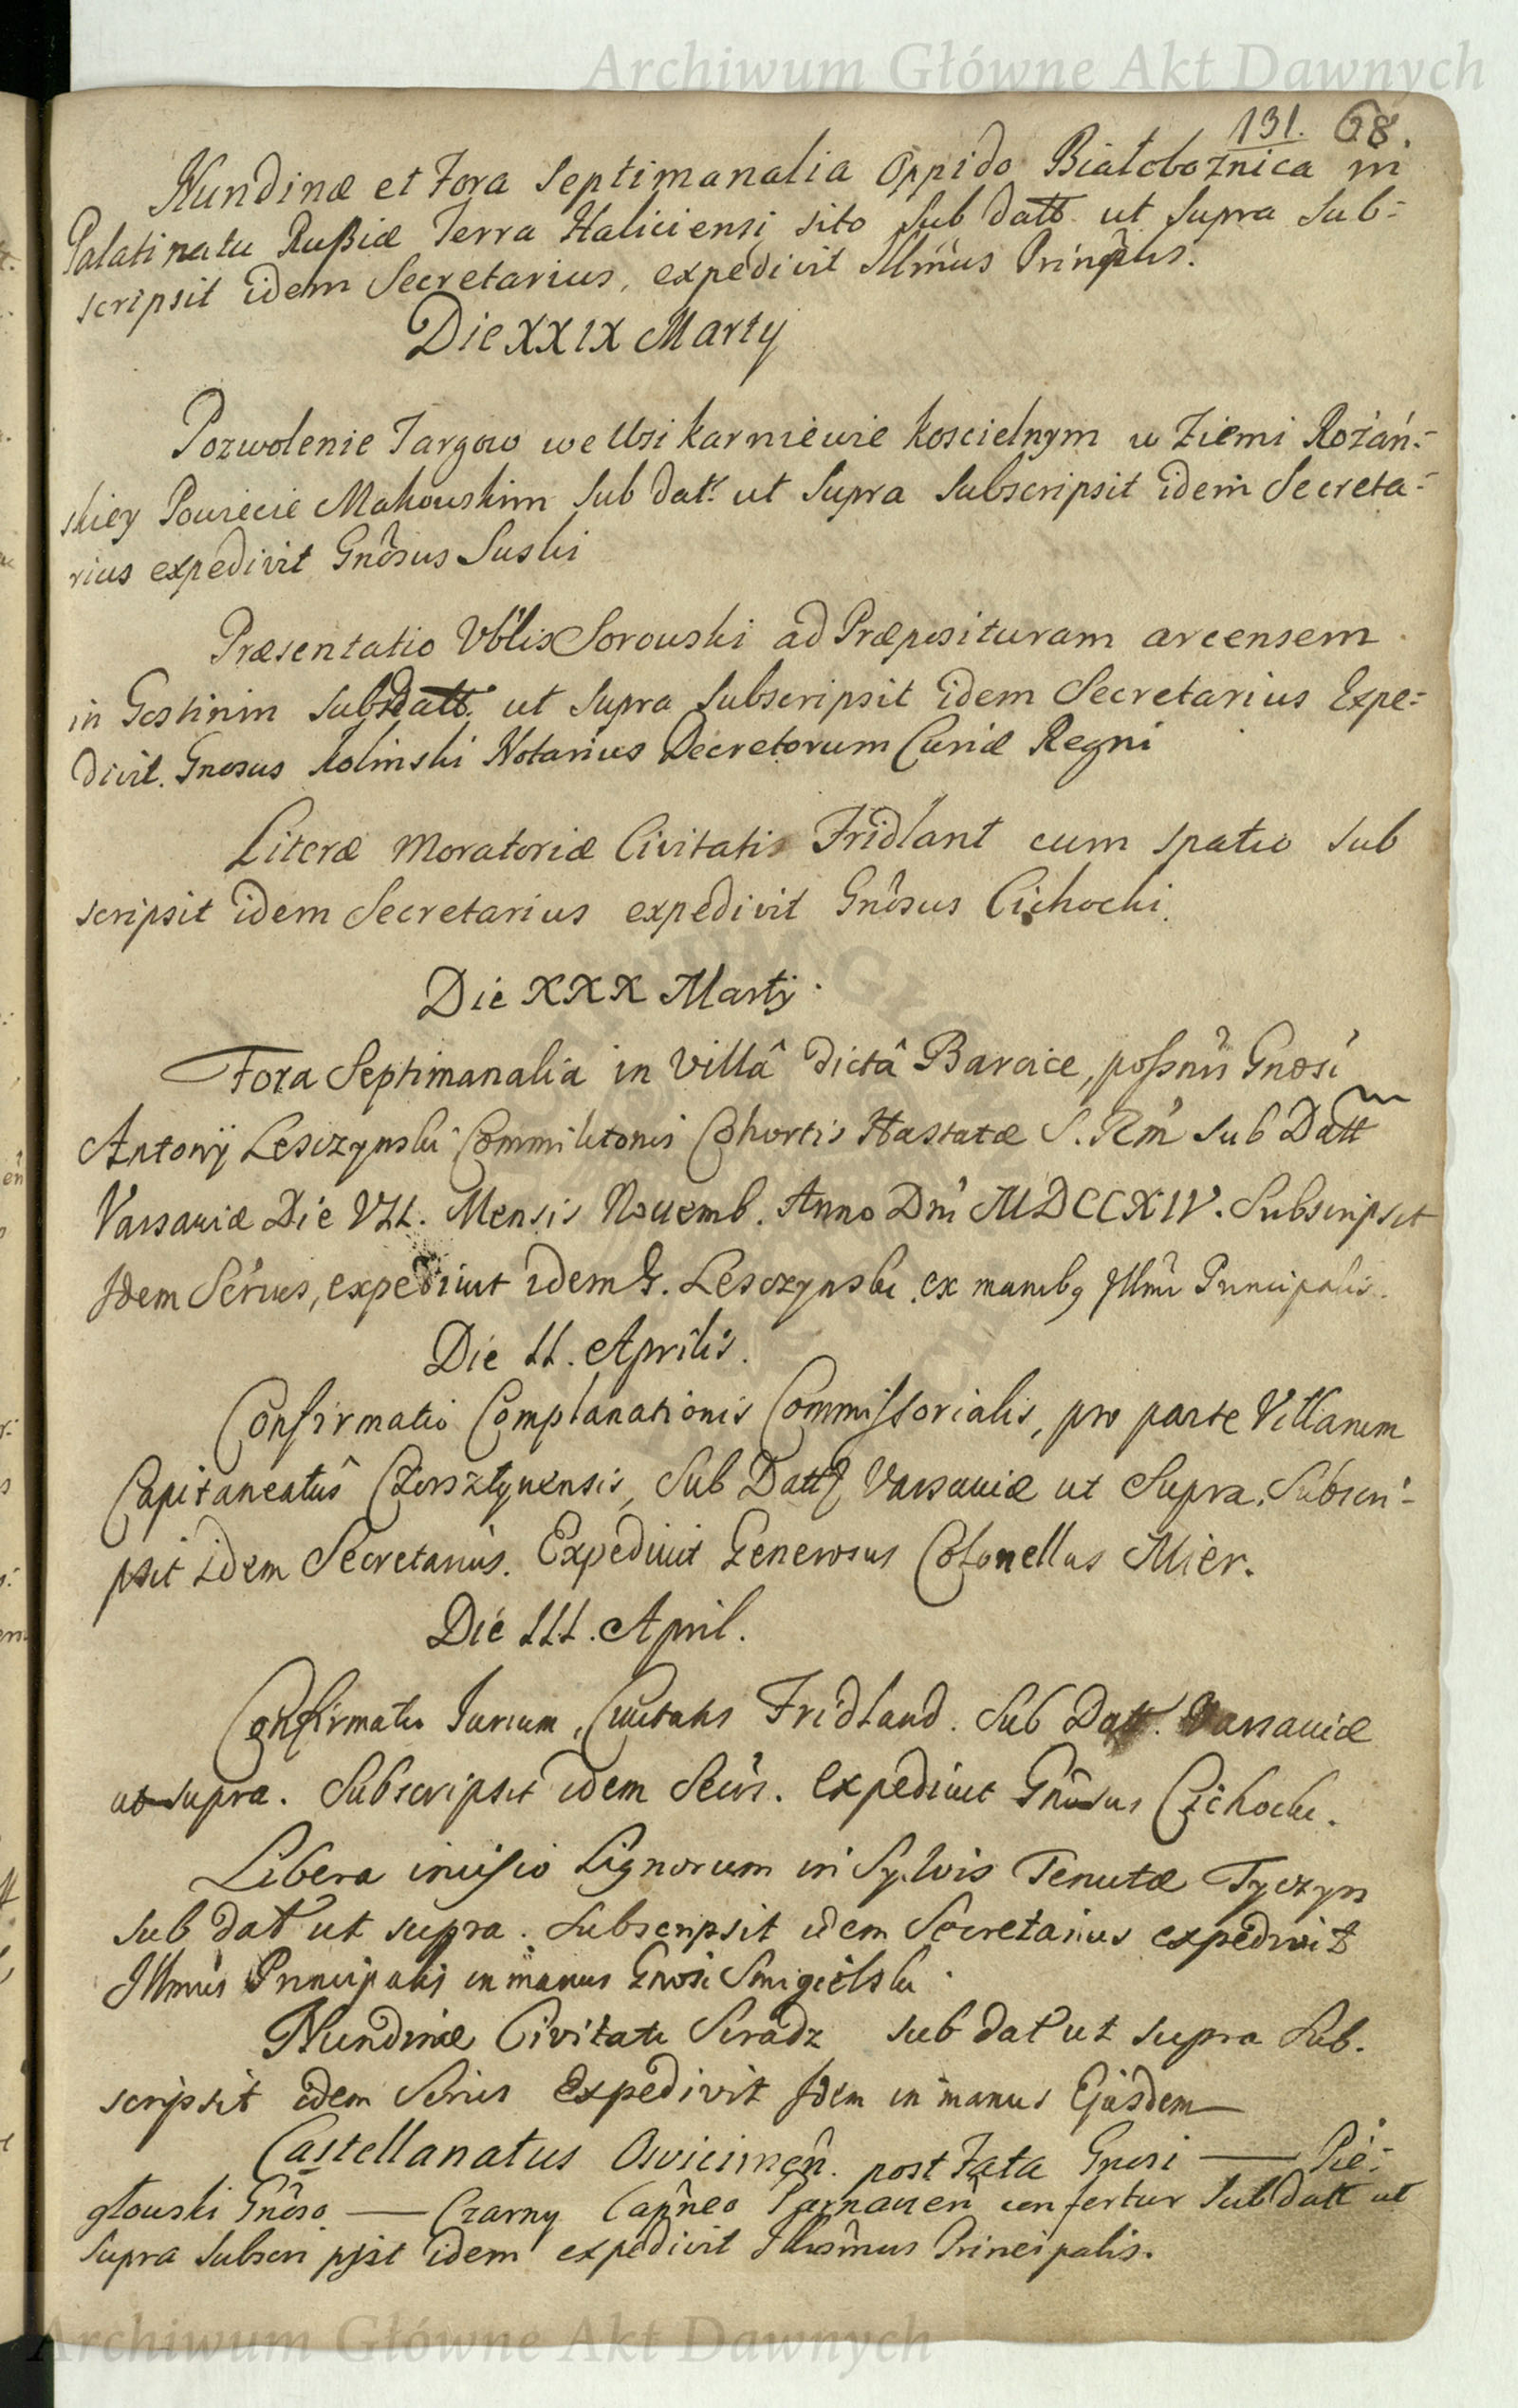 Archiwum Główne Akt Dawnych
131. 68.
Nundinæ et Fora Septimanalia Oppido Białobożnica in
Palatinatu Rußiæ Terra Haliciensi sito sub datt. ut supra sub=
scripsit idem Secretarius, expedivit Illmus Prinplis.
Die XXIX Marty
Pozwolenie Targow we Wsi Karniewie Koscielnym w Ziemi Rożań=
skiey Powiecie Makowskim sub datt. ut supra subscripsit idem Secreta=
rius expedivit Gnôsus Suski
Præsentatio Vblis Sorowski ad Præposituram arcensem
in Gostinin sub datt. ut supra subscripsit idem Secretarius Expe=
divit. Gnosus Kolinski Notarius Decretorum Curiæ Regni
Literæ Moratoriæ Civitatis Fridlant cum spatio sub
scripsit idem Secretarius expedivit Gnôsus Cichocki.
Die XXX Martij.
Fora Septimanalia in villâ dictâ Barcice, poßnis Gnosi
Antonij Lesczynski Commilitonis Cohortis Hastatæ S. Rm sub Datt
Varsaviæ Die VII. Mensis Novemb. Anno Dni MDCCXIV. Subscripsit
Idem Sêrius, expedivit idem G. Lesczynski ex manibq Illmi Principalis.
Die II. Aprilis.
Confirmatio Complanationis Commissorialis, pro parte Villarum
Capitaneatûs Czorsztynensis, Sub Datt Varsaviæ ut Supra. Subscri-
psit idem Secretarius. Expedivit Generosus Colonellus Mier.
Die III. April.
Confirmatio Iurium Civitatis Fridland. Sub Datt. Varsaviæ
ut supra. Subscripsit idem Secrs. expedivit Gnôsus Cichocki.
Libera incisio Lignorum in Sylvis Tenutæ Tyczyn
sub dat ut supra. subscripsit idem Secretarius expedivit
Illmus Principalis in manus Gnosi Smigielski.
Nundinæ Civitati Siradz sub dat ut supra Sub.
scripsit idem Serius Expedivit Idem in manus Ejusdem
Castellanatus Oswicimen. post Fata Gnosi — Pie=
głowski Gnôso — Czarny Capneo Parnaven confertur sub datt ut
supra subscripsit idem expedivit Illusmus Principalis.
Archiwum Główne Akt Dawnych